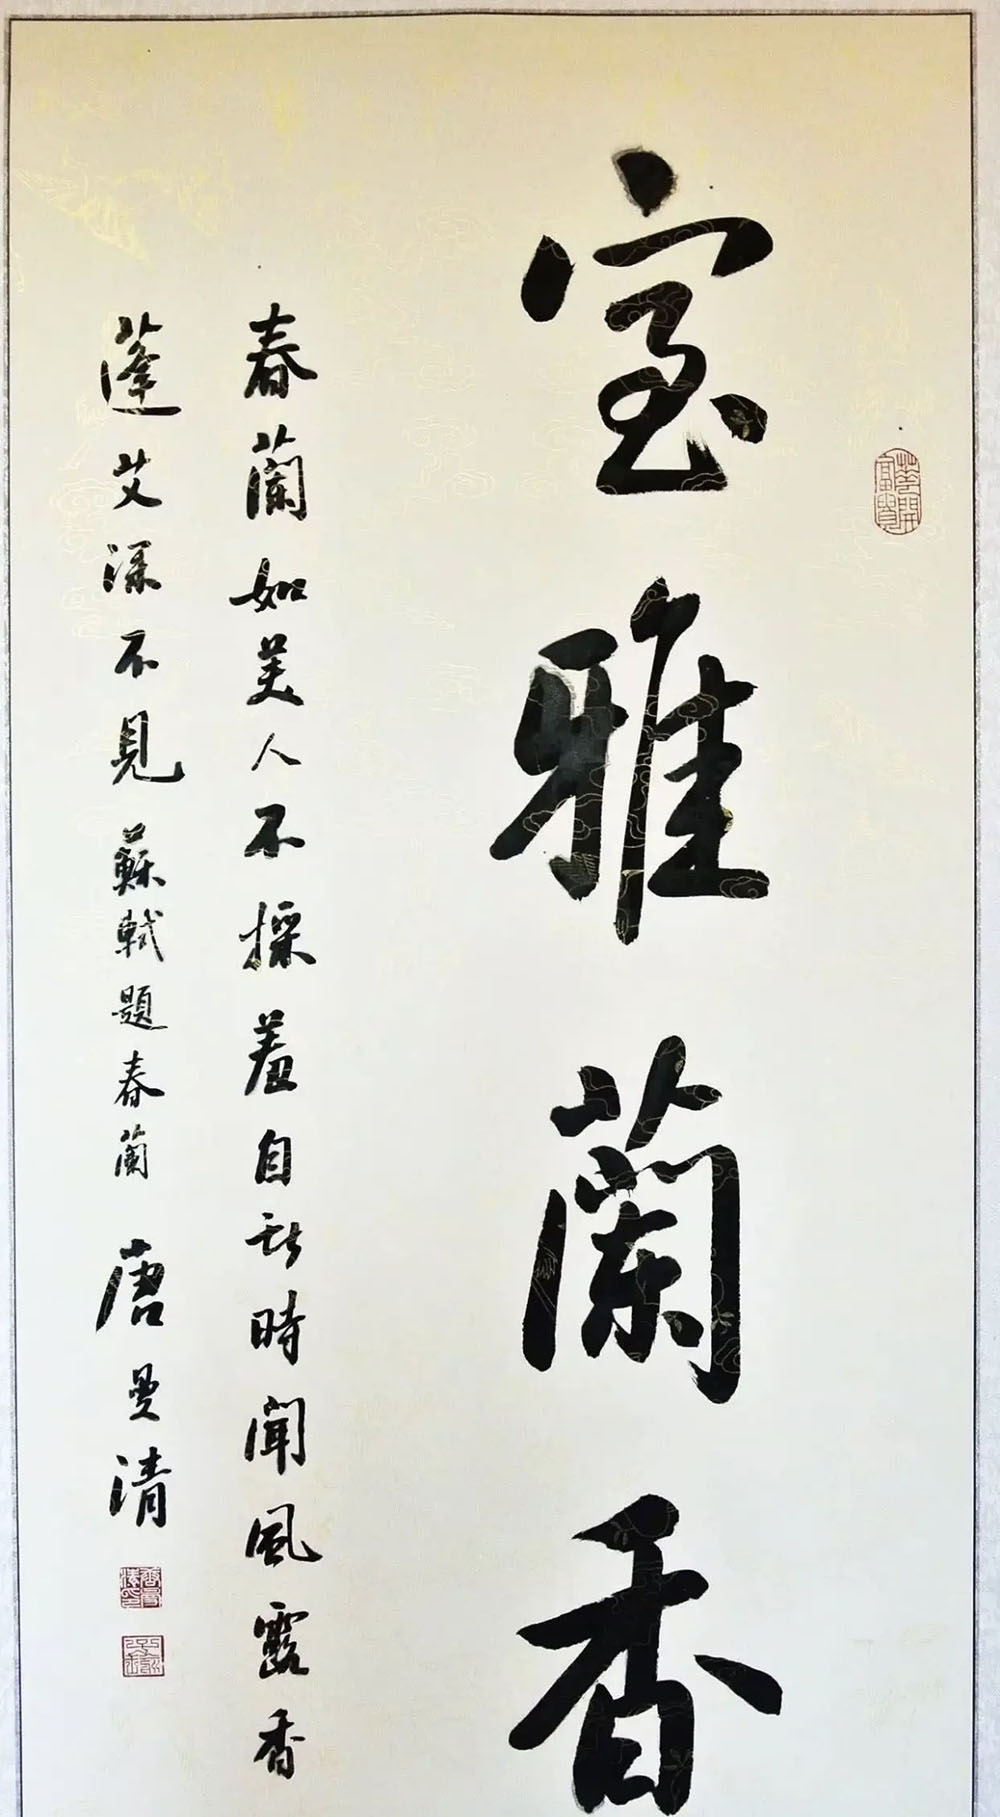 華開富貴
室雅蘭香
春蘭如美人不採羞自獻時聞風露香
蓬艾深不見蘇軾題春蘭 唐曼清